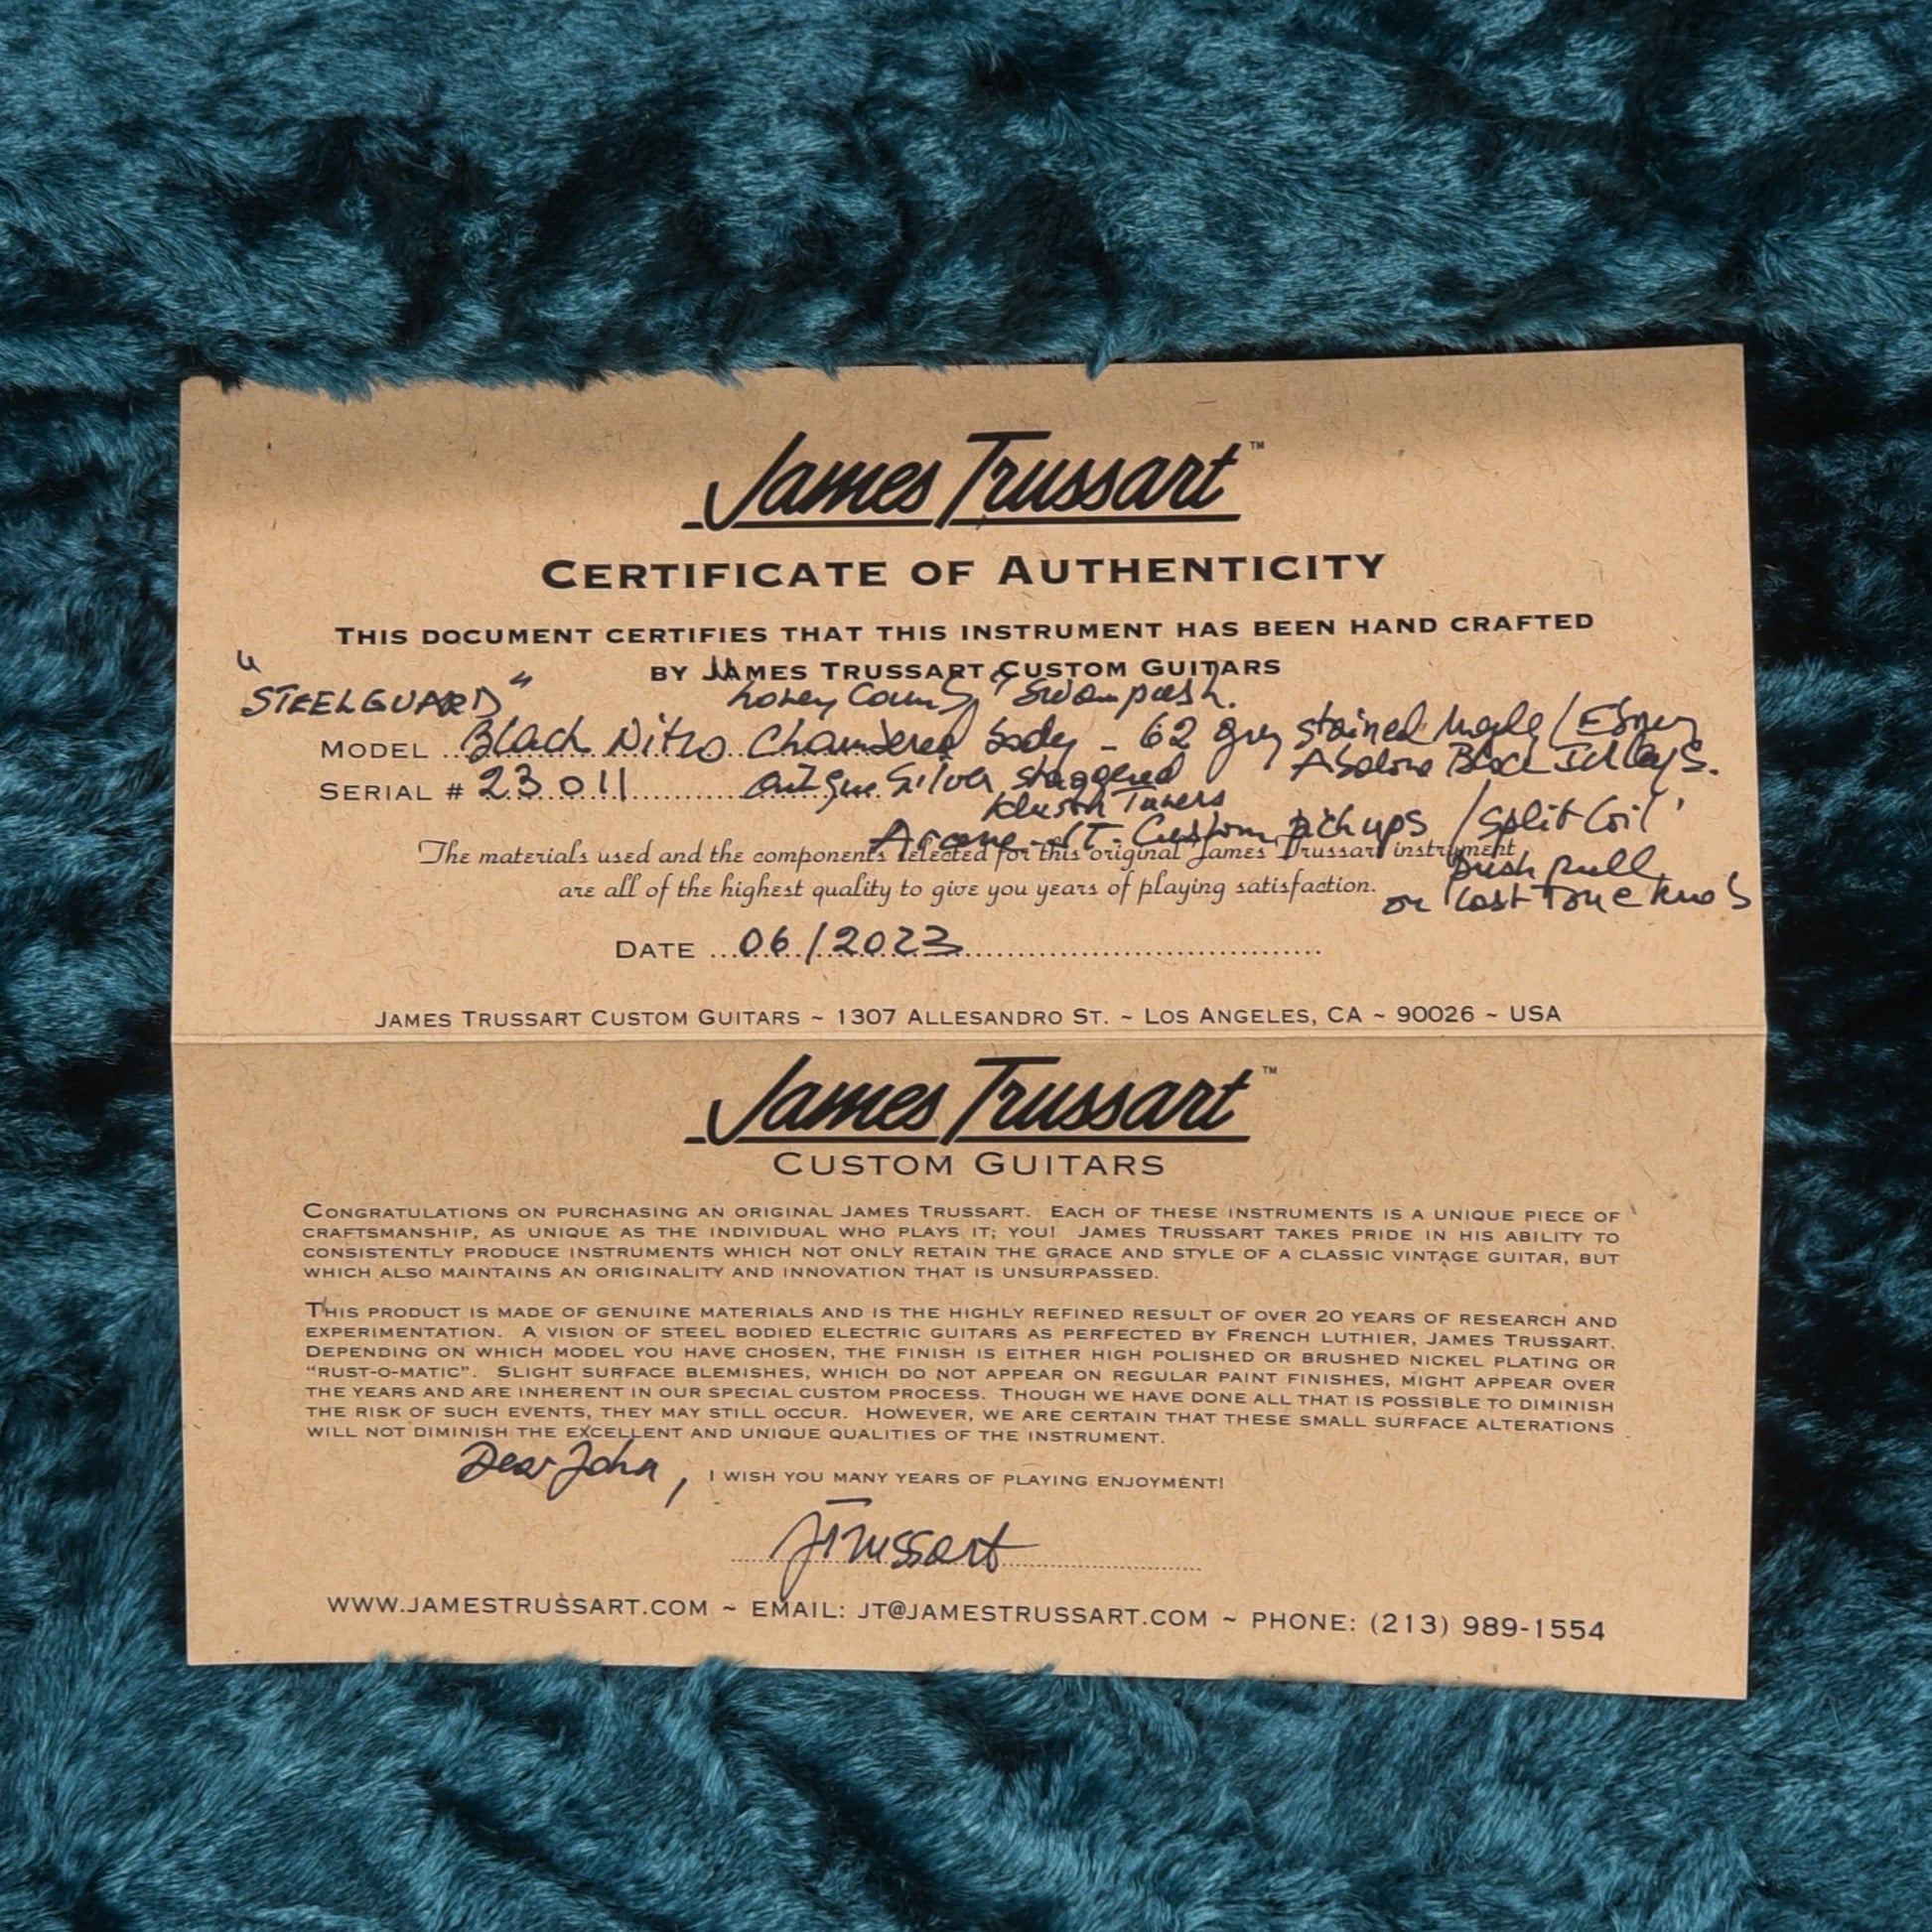 James Trussart™
CERTIFICATE OF AUTHENTICITY
THIS DOCUMENT CERTIFIES THAT THIS INSTRUMENT HAS BEEN HAND CRAFTED
BY JAMES TRUSSART CUSTOM GUITARS
"STEELGUARD"
Swampash.
MODEL Black Nitro Chambered body - 62 grey stained Maple / Ebony
Abalone Block Inlays.
SERIAL # 23011 antique Silver staggered
Kluson Tuners
Arcane JT-Custom pickups / Split Coil'
The materials used and the components selected for this original James Trussart instrument
push pull
are all of the highest quality to give you years of playing satisfaction.
on last Tone knob
DATE 06/2023
JAMES TRUSSART CUSTOM GUITARS ~ 1307 ALLESANDRO ST. ~ LOS ANGELES, CA ~ 90026 ~ USA
James Trussart™
CUSTOM GUITARS
CONGRATULATIONS ON PURCHASING AN ORIGINAL JAMES TRUSSART. EACH OF THESE INSTRUMENTS IS A UNIQUE PIECE OF
CRAFTSMANSHIP, AS UNIQUE AS THE INDIVIDUAL WHO PLAYS IT; YOU! JAMES TRUSSART TAKES PRIDE IN HIS ABILITY TO
CONSISTENTLY PRODUCE INSTRUMENTS WHICH NOT ONLY RETAIN THE GRACE AND STYLE OF A CLASSIC VINTAGE GUITAR, BUT
WHICH ALSO MAINTAINS AN ORIGINALITY AND INNOVATION THAT IS UNSURPASSED.
THIS PRODUCT IS MADE OF GENUINE MATERIALS AND IS THE HIGHLY REFINED RESULT OF OVER 20 YEARS OF RESEARCH AND
EXPERIMENTATION. A VISION OF STEEL BODIED ELECTRIC GUITARS AS PERFECTED BY FRENCH LUTHIER, JAMES TRUSSART.
DEPENDING ON WHICH MODEL YOU HAVE CHOSEN, THE FINISH IS EITHER HIGH POLISHED OR BRUSHED NICKEL PLATING OR
"RUST-O-MATIC". SLIGHT SURFACE BLEMISHES, WHICH DO NOT APPEAR ON REGULAR PAINT FINISHES, MIGHT APPEAR OVER
THE YEARS AND ARE INHERENT IN OUR SPECIAL CUSTOM PROCESS. THOUGH WE HAVE DONE ALL THAT IS POSSIBLE TO DIMINISH
THE RISK OF SUCH EVENTS, THEY MAY STILL OCCUR. HOWEVER, WE ARE CERTAIN THAT THESE SMALL SURFACE ALTERATIONS
WILL NOT DIMINISH THE EXCELLENT AND UNIQUE QUALITIES OF THE INSTRUMENT.
Dear John, I WISH YOU MANY YEARS OF PLAYING ENJOYMENT!
JTrussart
WWW.JAMESTRUSSART.COM ~ EMAIL: JT@JAMESTRUSSART.COM ~ PHONE: (213) 989-1554